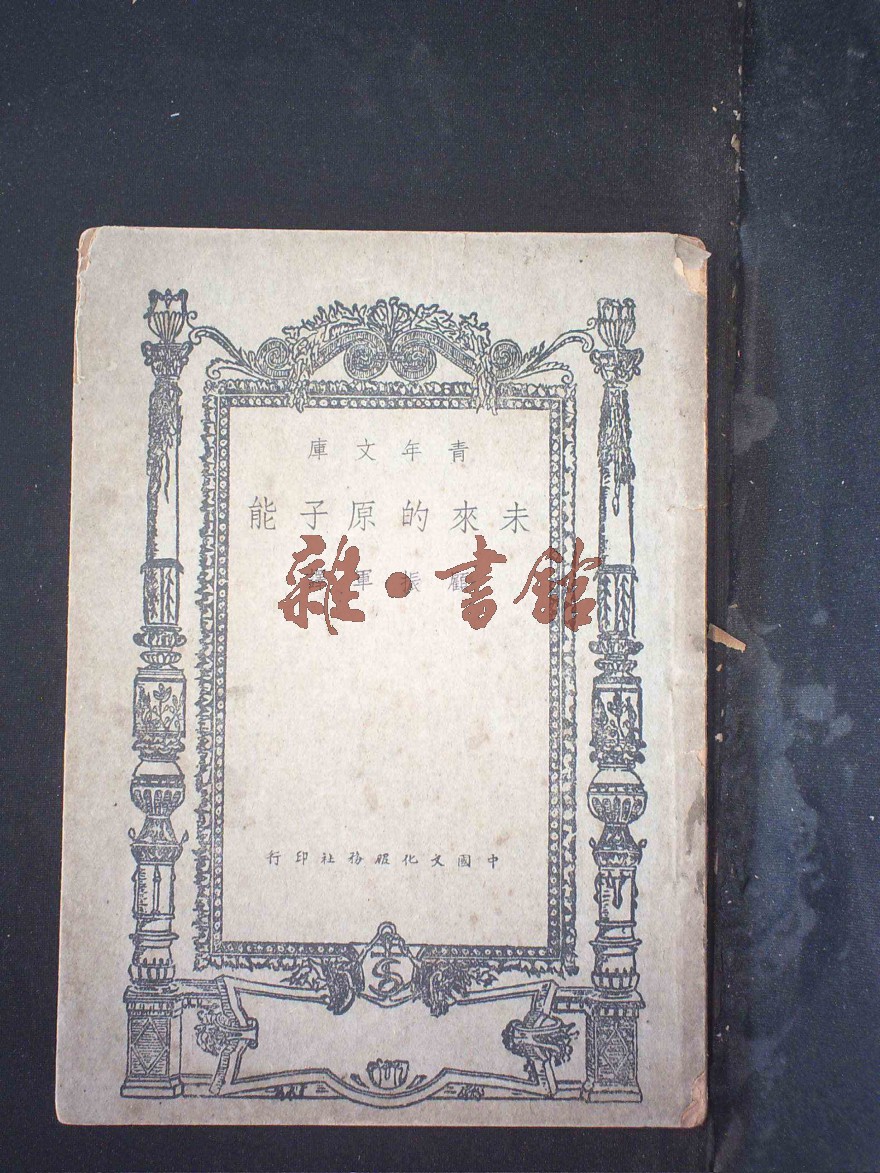 青年文庫
未來的原子能
顧振軍
雜·書館
中國文化服務社印行